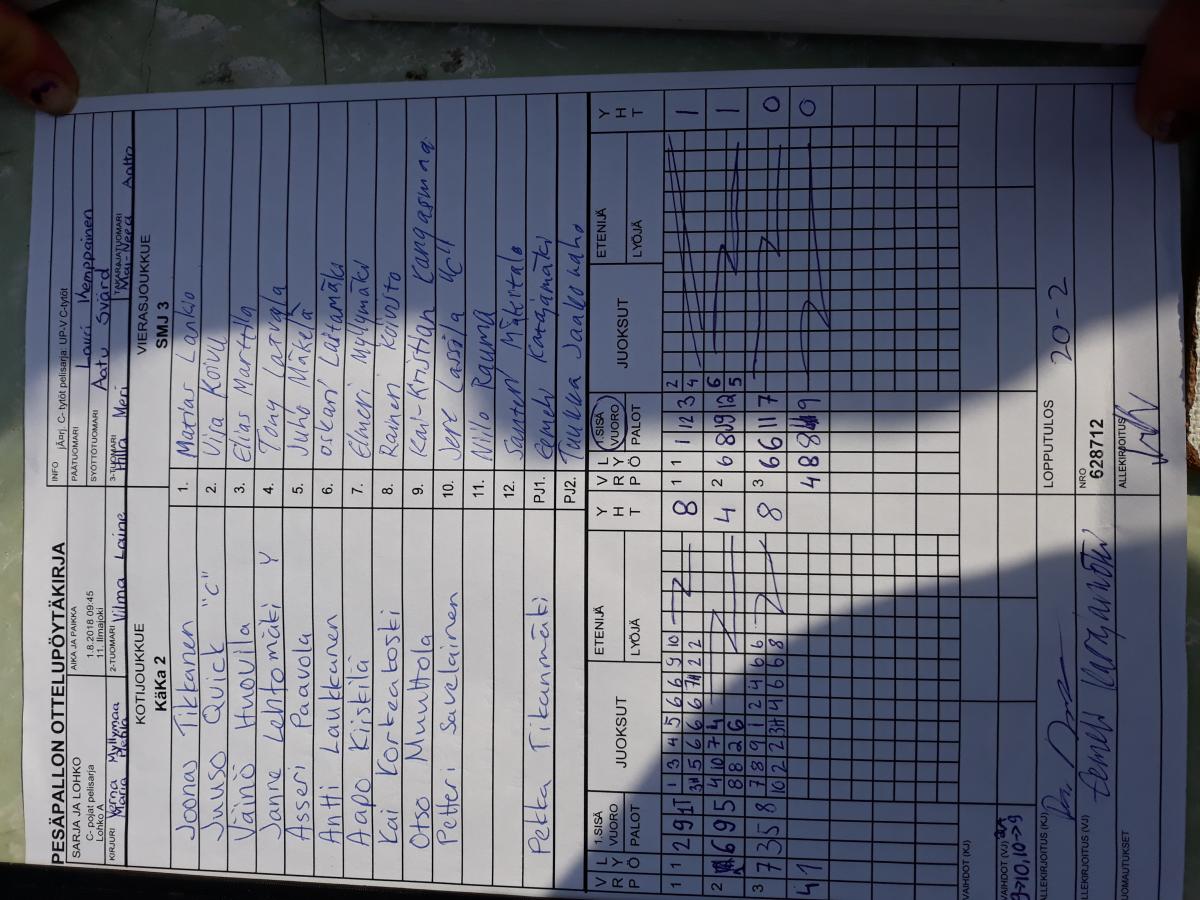 PESÄPALLON OTTELUPÖYTÄKIRJA
SARJA JA LOHKO
C- pojat pelisarja
Lohko A
AIKA JA PAIKKA
1.8.2018 09:45
11. Ilmajoki
INFO jÄorj. C- tytöt pelisarja: UP-V C-tytöt
PÄÄTUOMARI Lauri Kemppainen
SYÖTTÖTUOMARI Aatu Svärd
KIRJURI Verna Myllymaa
Maria
2-TUOMARI Vilma Laine
3-TUOMARI Hilla Meri
TAKARAJATUOMARI Mai-Neea Aalto
KOTIJOUKKUE
KäKa 2
VIERASJOUKKUE
SMJ 3
Joonas Tikkanen
Juuso Quick "C"
Väinö Huovila
Janne Lehtomäki Y
Asseri Paavola
Antti Laukkanen
Aapo Kiiskilä
Kai Korkeakoski
Otso Muuttola
Petteri Savelainen
Pekka Tikanmäki
1. Matias Lankio
2. Vija Koivu
3. Elias Marttila
4. Tomy Latvala
5. Juho Mäkelä
6. Oskari Luhtamäki
7. Elmeri Myllymäki
8. Rasmeri Koivisto
9. Kai-Kristian Kangasmaa
10. Jere Lassila "C"
11. Niilo Rauma
12. Santeri Mäkitalo
PJ1. Eemeli Katajamäki
PJ2. Tuukka Jaakonaho
V R P L Y Ö 1.SISÄ VUORO PALOT JUOKSUT ETENIJÄ LYÖJÄ Y H T
1 1 2 9 1 1 3 4 5 6 6 9 10 8
5 6 6 6 2 2
2 6 9 5 4 10 7 4 4
8 8 2 6
3 7 3 5 8 7 8 9 1 2 4 6 6 8
10 2 2 4 6 6 8
4 1
V R P L Y Ö 1.SISÄ VUORO PALOT JUOKSUT ETENIJÄ LYÖJÄ Y H T
1 1 1 12 3 2 1
4
2 6 8 9 12 6 1
5
3 6 6 11 7 0
4 8 8 9 0
VAIHDOT (KJ)
VAIHDOT (VJ)
9->10, 10->9
LOPPUTULOS 20-2
ALLEKIRJOITUS (KJ)
ALLEKIRJOITUS (VJ) Eemeli
NRO
628712
HUOMAUTUKSET
ALLEKIRJOITUS